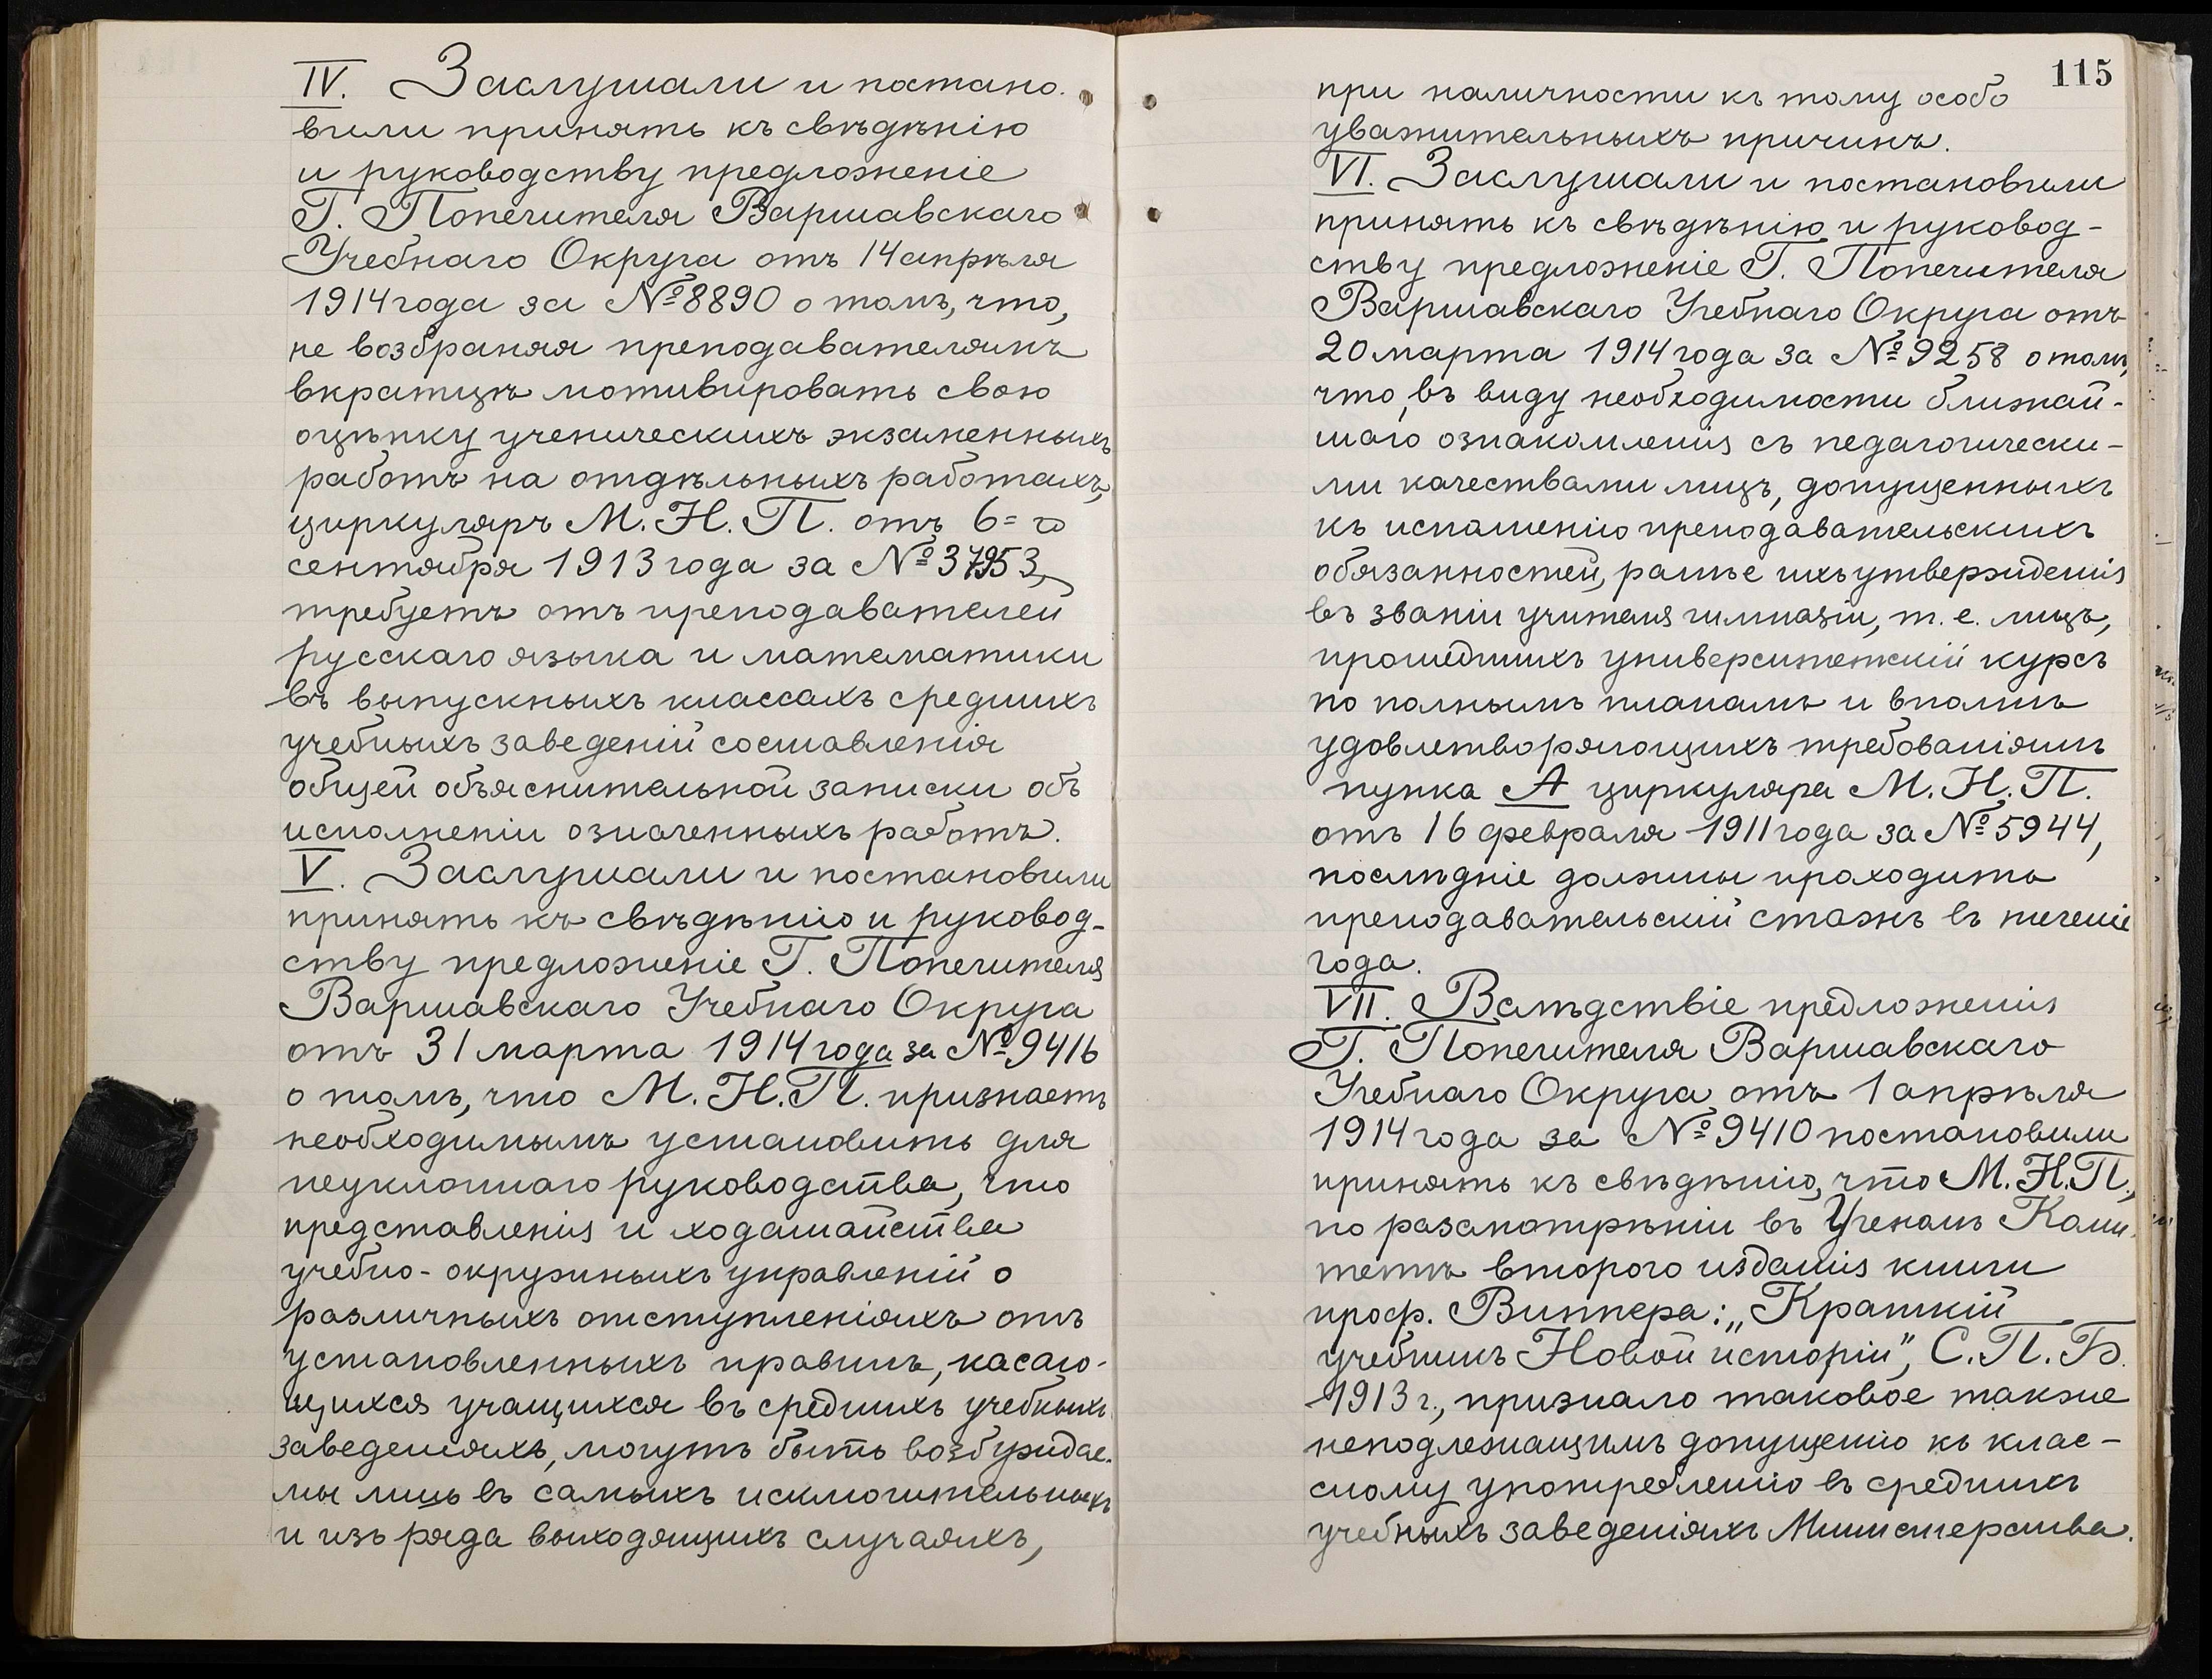 IV. Заслушали и постано-
вили принять къ свѣдѣнію
и руководству предложеніе
Г. Попечителя Варшавскаго
Учебнаго Округа отъ 14 апрѣля
1914 года за № 8890 о томъ, что,
не возбраняя преподавателямъ
вкратцѣ мотивировать свою
оцѣнку ученическихъ экзаменныхъ
работъ на отдѣльныхъ работахъ,
циркуляръ М. Н. П. отъ 6=го
сентября 1913 года за №
требуетъ отъ преподавателей
русскаго языка и математики
въ выпускныхъ классахъ среднихъ
учебныхъ заведеній составленія
общей объяснительной записки объ
исполненіи означенныхъ работъ.
V. Заслушали и постановили
принять къ свѣдѣнію и руковод-
ству предложеніе Г. Попечителя
Варшавскаго Учебнаго Округа
отъ 31 марта 1914 года за № 9416
о томъ, что М. Н. П. признаетъ
необходимымъ установить для
неуклоннаго руководства, что
представленія и ходатайства
учебно-окружныхъ управленій о
различныхъ отступленіяхъ отъ
установленныхъ правилъ, касаю-
щихся учащихся въ среднихъ учебныхъ
заведеніяхъ, могутъ быть возбуждае-
мы лишь въ самыхъ исключительныхъ
и изъ ряда выходящихъ случаяхъ,
115
при наличности къ тому особо
уважительныхъ причинъ.
VI. Заслушали и постановили
принять къ свѣдѣнію и руковод-
ству предложеніе Г. Попечителя
Варшавскаго Учебнаго Округа отъ
20 марта 1914 года за № 9258 о томъ,
что, въ виду необходимости ближай-
шаго ознакомленія съ педагогически-
ми качествами лицъ, допущенныхъ
къ исполненію преподавательскихъ
обязанностей, ранѣе ихъ утвержденія
въ званіи учителя гимназіи, т. е. лицъ,
прошедшихъ университетскій курсъ
по полнымъ планамъ и вполнѣ
удовлетворяющихъ требованіямъ
пунка А циркуляра М. Н. П.
отъ 16 февраля 1911 года за № 5944,
послѣдніе должны проходить
преподавательскій стажъ въ теченіе
года.
VII. Вслѣдствіе предложенія
Г. Попечителя Варшавскаго
Учебнаго Округа отъ 1 апрѣля
1914 года за № 9410 постановили
принять къ свѣдѣнію, что М. Н. П.,
по разсмотрѣніи въ Ученомъ Коми-
тетѣ второго изданія книги
проф. Виппера: „Краткій
учебникъ Новой исторіи", С. П. Б.
1913 г., признало таковое также
неподлежащимъ допущенію къ клас-
сному употребленію въ среднихъ
учебныхъ заведеніяхъ Министерства.